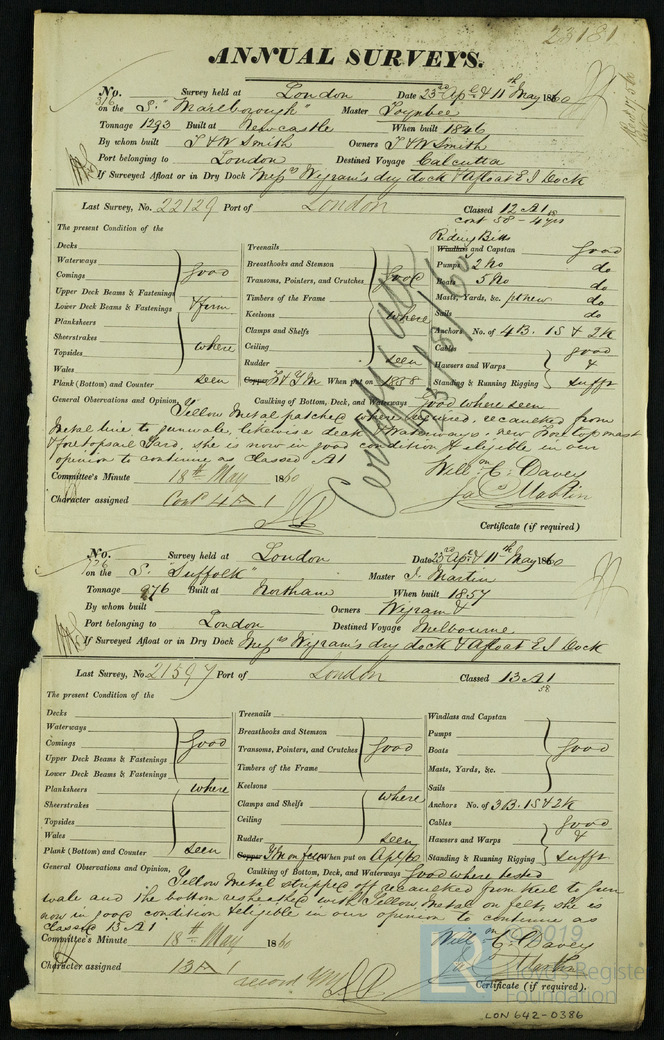 23181
ANNUAL SURVEYS.
No. 316 Survey held at London Date 23rd Apl & 11th May 1860
on the S. "Marlborough" Master Toynbee
Tonnage 1293 Built at Newcastle When built 1846
By whom built T & W Smith Owners T & W Smith
Port belonging to London Destined Voyage Calcutta
If Surveyed Afloat or in Dry Dock Messrs Wigram's dry dock & Afloat E I Dock
Last Survey, No. 22129 Port of London Classed 12 A1
cont 58 - 4 yrs
The present Condition of the
Decks
Waterways
Comings
Upper Deck Beams & Fastenings
Lower Deck Beams & Fastenings
Planksheers
Sheerstrakes
Topsides
Wales
Plank (Bottom) and Counter
good
& firm
where
seen
Treenails
Breasthooks and Stemson
Transons, Pointers, and Crutches
Timbers of the Frame
Keelsons
Clamps and Shelfs
Ceiling
Rudder
good
where
seen
Copper F & Y M When put on 1858
Riding Bitts
Windlass and Capstan good
Pumps 2 No do
Boats 5 No do
Masts, Yards, &c. pt new do
Sails do
Anchors No. of 4 B. 1 S & 2 K
Cables good
Hawsers and Warps &
Standing & Running Rigging sufft
General Observations and Opinion, Caulking of Bottom, Deck, and Waterways good where seen
Yellow Metal patched where required, recaulked from
Metal line to gunwale, likewise deck & Waterways, new fore top mast
& fore topsail Yard, she is now in good condition & eligible in our
opinion to continue as classed A1
Committee's Minute 18th May 1860
Will m C. Davey
Jas Martin
Character assigned Cont 4 A 1
Certificate (if required)
No. 726 Survey held at London Date 23rd Apl & 11th May 1860
on the S. "Suffolk" Master J. Martin
Tonnage 976 Built at Northam When built 1857
By whom built Owners Wigram &
Port belonging to London Destined Voyage Melbourne
If Surveyed Afloat or in Dry Dock Messrs Wigram's dry dock & Afloat E I Dock
Last Survey, No. 21597 Port of London Classed 13 A1
58
The present Condition of the
Decks
Waterways
Comings
Upper Deck Beams & Fastenings
Lower Deck Beams & Fastenings
Planksheers
Sheerstrakes
Topsides
Wales
Plank (Bottom) and Counter
good
where
seen
Treenails
Breasthooks and Stemson
Transoms, Pointers, and Crutches
Timbers of the Frame
Keelsons
Clamps and Shelfs
Ceiling
Rudder
good
where
seen
Copper Y M on felt When put on Apl 60
Windlass and Capstan
Pumps
Boats
Masts, Yards, &c.
Sails
good
Anchors No. of 3 B. 1 S & 2 K
Cables good
Hawsers and Warps &
Standing & Running Rigging sufft
General Observations and Opinion, Caulking of Bottom, Deck, and Waterways good where tested
Yellow Metal stripped off recaulked from Keel to gun
wale and the bottom resheathed with Yellow Metal on felt, she is
now in good condition & eligible in our opinion to continue as
classed 13 A1
Committee's Minute 18th May 1860
Will m C. Davey
Jas Martin
Character assigned 13 A 1
record YM
Certificate (if required).
LR
©2019
Lloyd's Register
Foundation
LON 642-0386